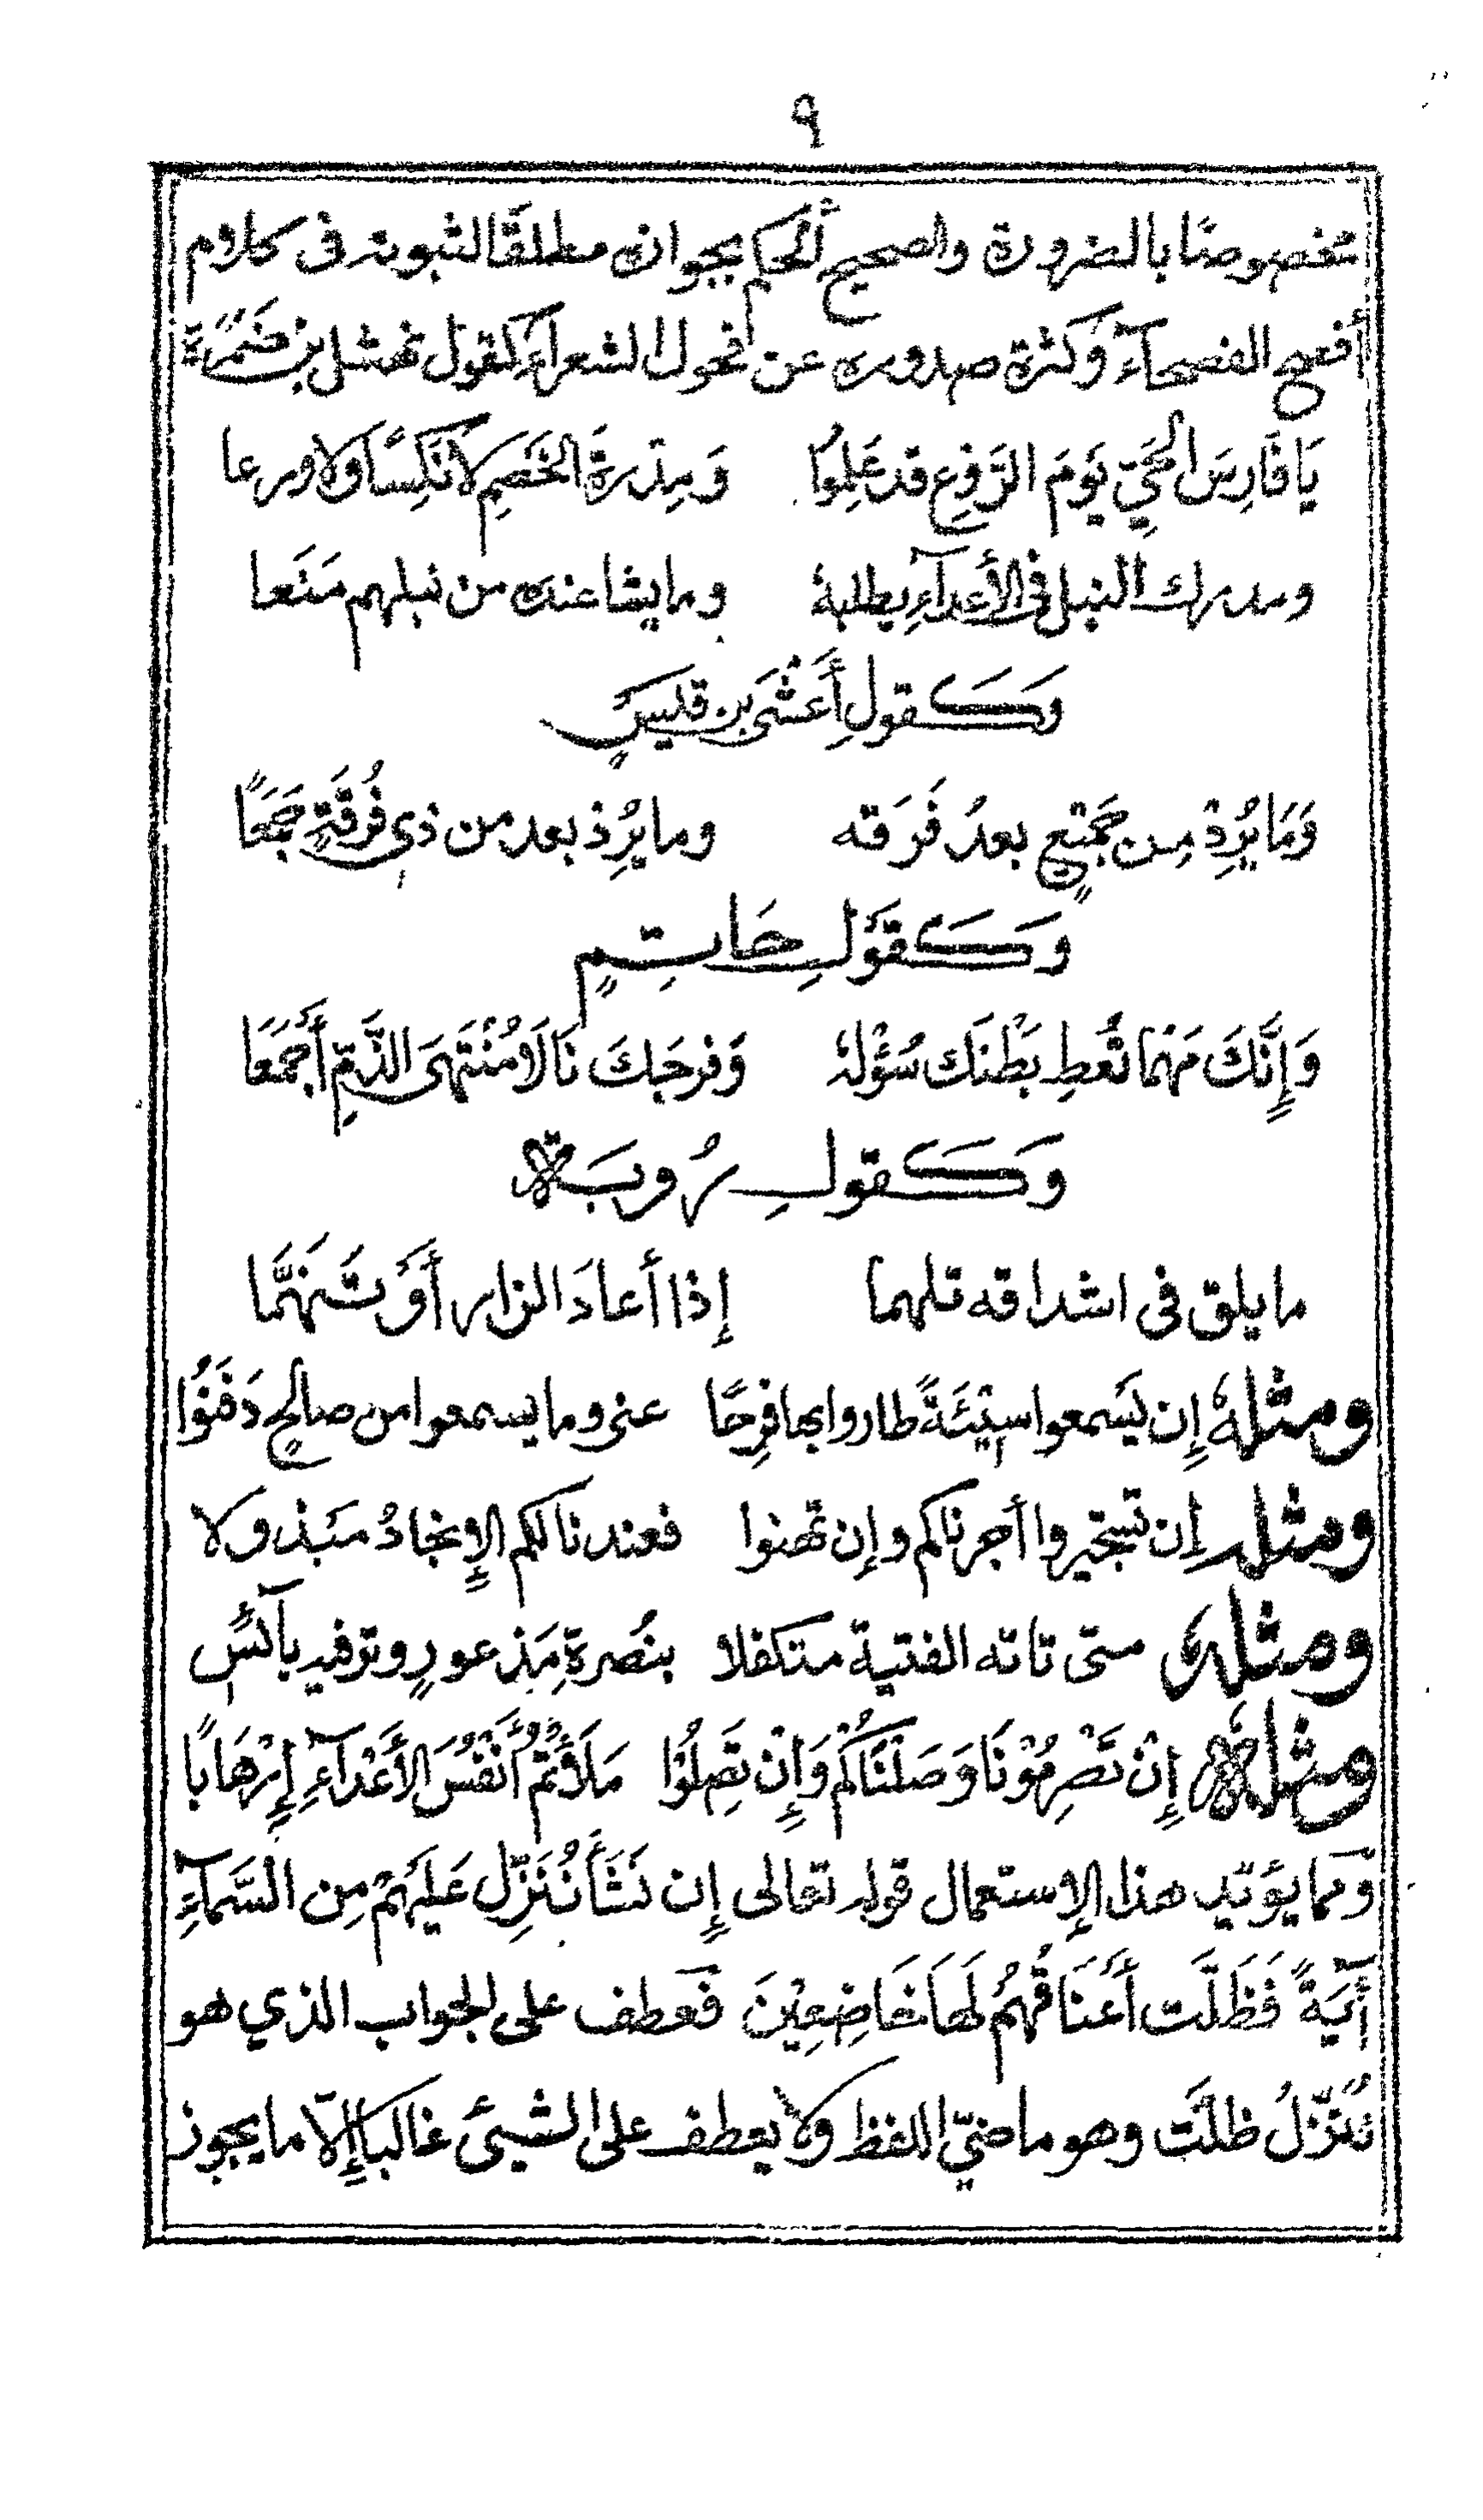 ٩
مخصوصًا بالضرورة والصحيح ألحكم بجوازه مطلقًا لثبوته فى كلام
أفصح الفصحآء وكثرة صدوره عن فحول الشعرآء كقول نهشل بن ضَمْرَة
يَا فَارِسَ الحَيِّ يَوْمَ الرَّوْعِ قد عَلِمُوا وَمِدْرَةَ الخَصْمِ لا نَكِسًا ولا ورعا
ومدرك النبل فى الأعدآءِ يطلبهُ وما يشا عنده من نبلهم مَنَعا
وَكَقولِ أَعْشَى بن قليسٍ
وَمَا يُرِدْ مِن جَمِيْعٍ بعدُ فَرَقه وما يُرِدْ بعد من ذي فُرْقَةٍ جَمَعًا
وَكَقَوْلِ حَاتِمٍ
وَإِنَّكَ مَهْمَا تُعْطِ بَطْنَكَ سُؤْلَهُ وَفرجَكَ نَالَا مُنْتَهَى الذَّمِّ أَجْمَعَا
وَكَقولِ رُوبَة
ما يلق فى اشداقه تلهما إذا أعادَ الزار أَوْ تَنَهَّمَا
ومثلهُ إِن يَسمعوا سيّئَةً طاروا بها فرِحًا عنى وما يسمعوا من صالحٍ دَفَنُوا
ومثله إن تستجيروا أجرناكم وإن تهنوا فعندنا لكم الإِنجادُ مبذولا
ومثلهُ متى تاته الفتية متكفلا بنُصرةِ مَذعورٍ وترفيد بآئسٍ
ومثله إِنْ تَصْرِمُوْنَا وَصَلْنَاكُمْ وَإِنْ تَصِلُوْا مَلَأْتُمْ أَنْفُسَ الأَعْدَآءِ إِرْهَابًا
وَمما يؤَيّد هذا الإستعمال قوله تعالى إِن نَشَأْ نُنَزِّل عَلَيْهِمْ مِن السَّمآءِ
آيَةً فَظَلَّت أَعْنَاقُهُمْ لَهَا خَاضِعِيْنَ فَعطف على الجواب الذي هو
نُنَزِّلُ ظلَّت وهو ماضيّ اللفظ ولا يعطف على الشيئ غالبا إلّا ما يجوز